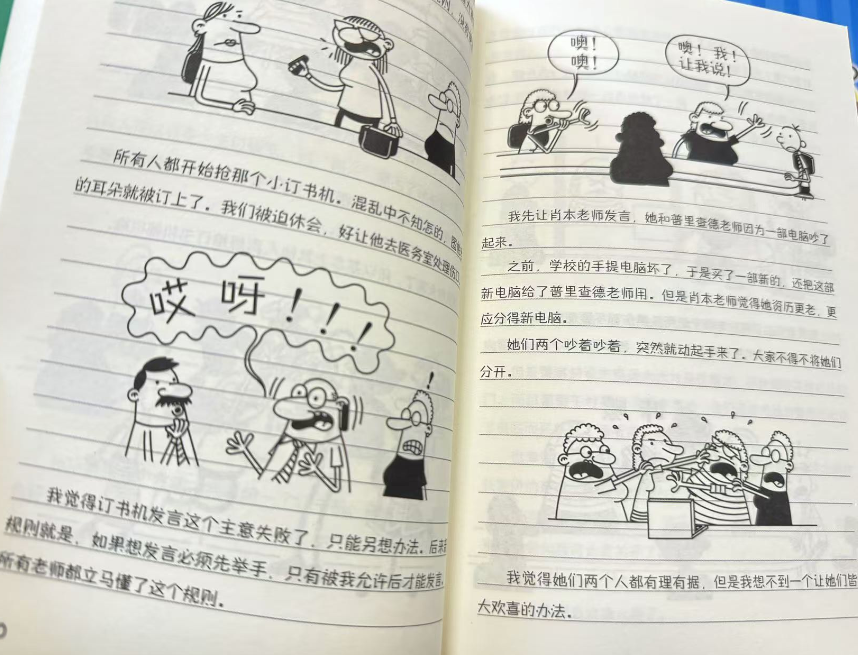 所有人都开始抢那个小订书机。混乱中不知怎的，
的耳朵就被订上了。我们被迫休会，好让他去医务室处理伤口
哎呀！！！
！
我觉得订书机发言这个主意失败了，只能另想办法。后来
规则就是，如果想发言必须先举手，只有被我允许后才能发言。
所有老师都立马懂了这个规则。
噢！
噢！
噢！我！
让我说！
我先让肖本老师发言，她和普里查德老师因为一部电脑吵了
起来。
之前，学校的手提电脑坏了，于是买了一部新的，还把这部
新电脑给了普里查德老师用。但是肖本老师觉得她资历更老，更
应分得新电脑。
她们两个吵着吵着，突然就动起手来了。大家不得不将她们
分开。
我觉得她们两个人都有理有据，但是我想不到一个让她们皆
大欢喜的办法。